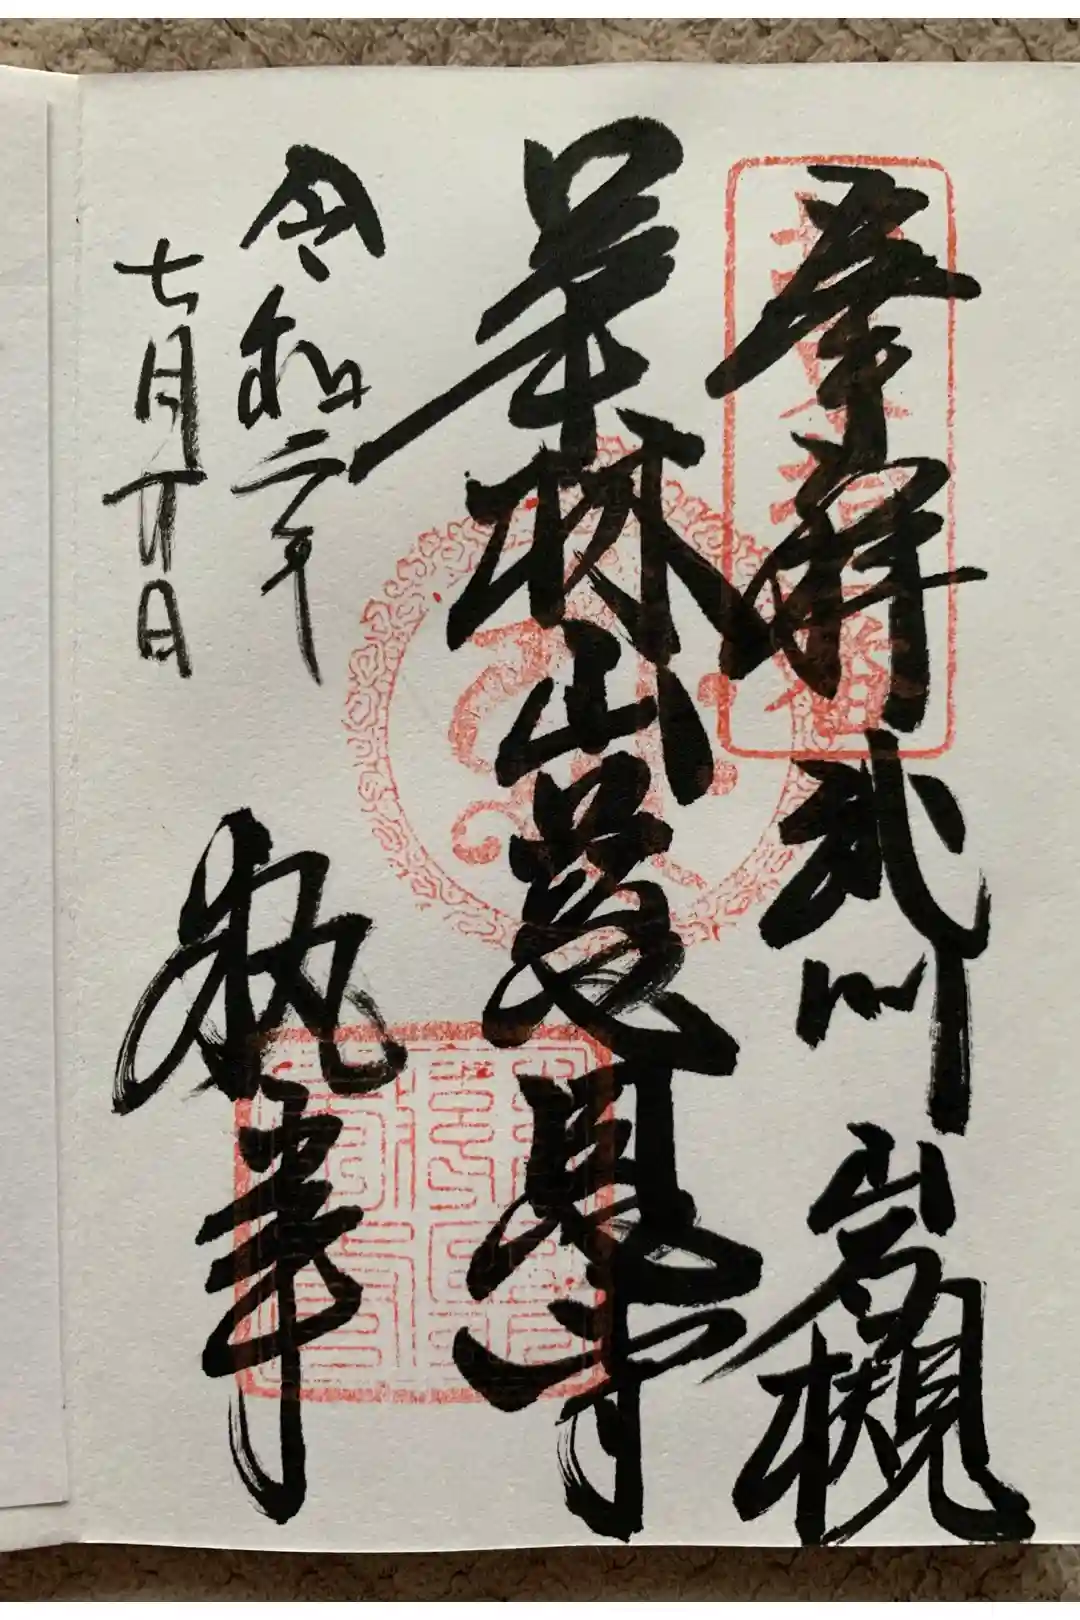 奉拝 武州 岩槻
華林山慈恩寺
令和二年
七月 日
執事